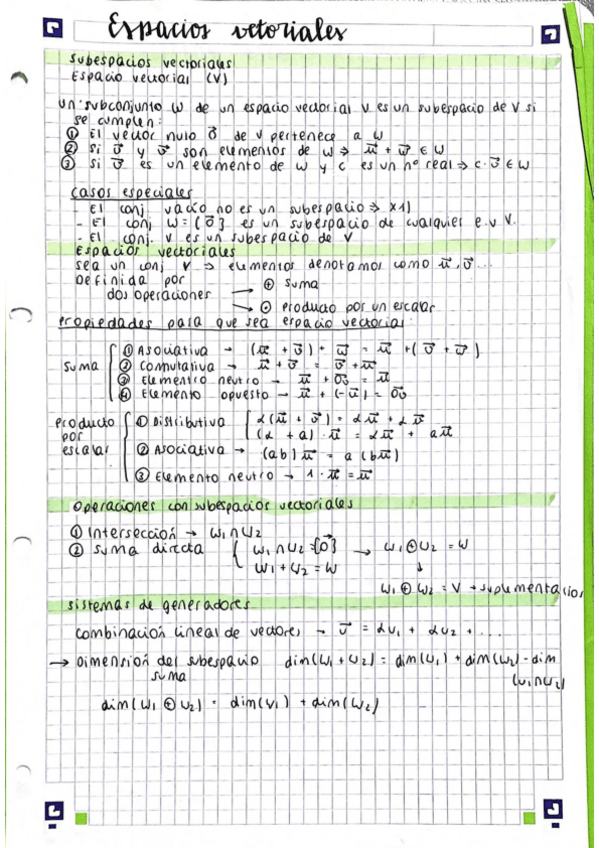 Espacios vectoriales
Subespacios vectoriales
Espacio vectorial (V)
un subconjunto W de un espacio vectorial V es un subespacio de V si
se cumplen:
① El vector nulo 0⃗ de V pertenece a W
② Si v⃗ y v⃗ son elementos de W ⇒ u⃗ + w⃗ ∈ W
③ Si v⃗ es un elemento de W y c es un nº real ⇒ c·v⃗ ∈ W
Casos especiales
- El conj. vacío no es un subespacio ⇒ x1)
- El conj W = {0⃗} es un subespacio de cualquier e.v V.
- El conj. V es un subespacio de V
Espacios vectoriales
sea un conj V ⇒ elementos denotamos como u⃗, v⃗...
Definida por
dos operaciones → ⊕ suma
→ ⊙ producto por un escalar
Propiedades para que sea espacio vectorial:
suma
① Asociativa → (u⃗ + v⃗) + w⃗ = u⃗ + (v⃗ + w⃗)
② Conmutativa → u⃗ + v⃗ = v⃗ + u⃗
③ Elemento neutro → u⃗ + 0⃗v = u⃗
④ Elemento opuesto → u⃗ + (-u⃗) = 0⃗v
producto por escalar
① Distributiva { α(u⃗ + v⃗) = αu⃗ + αv⃗
(α + a)·u⃗ = αu⃗ + au⃗
② Asociativa → (ab)u⃗ = a(bu⃗)
③ Elemento neutro → 1·u⃗ = u⃗
Operaciones con subespacios vectoriales
① Intersección → W1∩U2
② Suma directa { W1∩U2 = {0⃗} → W1⊕U2 = W
W1 + U2 = W
↓
W1⊕W2 = V → suplementarios
Sistemas de generadores
combinación lineal de vectores → v⃗ = αv1 + αv2 + ...
→ Dimensión del subespacio suma dim(W1 + U2) = dim(U1) + dim(W2) - dim
(U1∩U2)
dim(W1⊕U2) = dim(V1) + dim(W2)